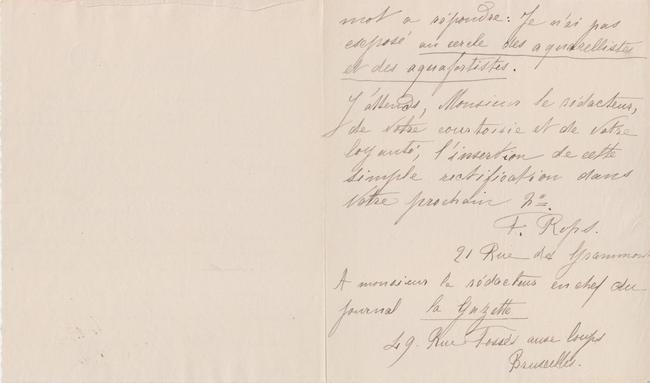 mot a répondre: Je n'ai pas
exposé au cercle des aquarellistes
et des aquafortistes.
J'attends, Monsieur le rédacteur,
de votre courtoisie et de votre
loyauté, l'insertion de cette
simple rectification dans
votre prochain No.
F. Rops.
21 Rue de Grammont
A monsieur le rédacteur en chef du
journal la Gazette
49. Rue Fossés aux loups
Bruxelles.